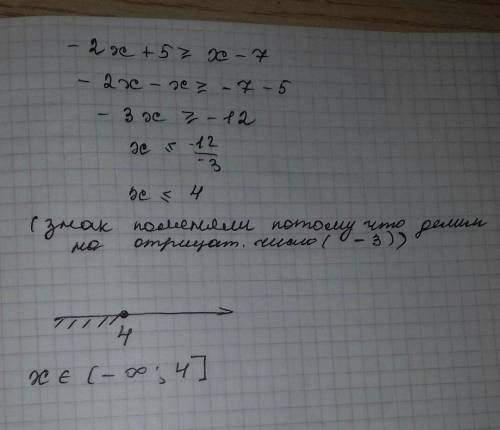 - 2x + 5 ≥ x - 7
- 2x - x ≥ - 7 - 5
- 3x ≥ - 12
x ≤ -12/-3
x ≤ 4
(знак поменяли потому что делим
на отрицат. число ( - 3))
4
x ∈ (- ∞; 4]